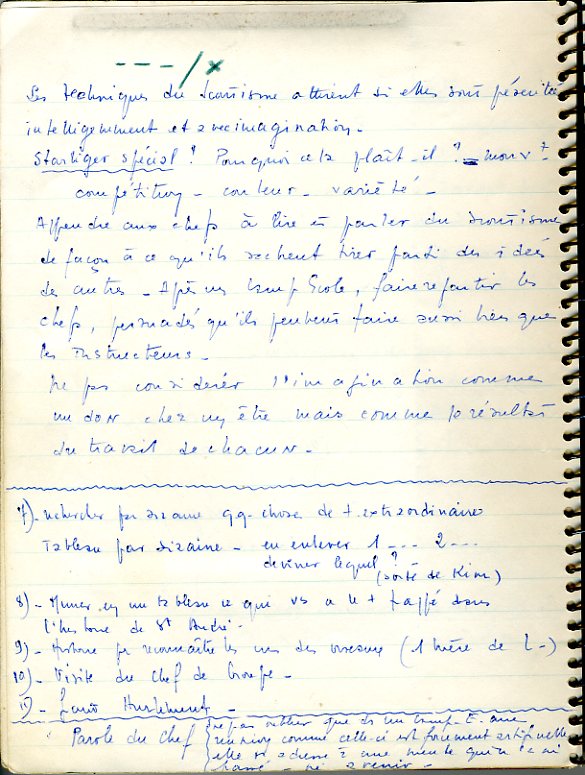 ---/x
Les techniques du scoutisme attirent si elles sont présentées
intelligemment et avec imagination.
Startiger spécial ! Pourquoi cela plaît-il ? = mouvt
compétition - couleur - variété -
Apprendre aux chefs à lire et parler du scoutisme
de façon à ce qu'ils sachent tirer parti des idées
des autres - Après un Camp Ecole, faire repartir les
chefs, persuadés qu'ils peuvent faire aussi bien que
les instructeurs -
Ne pas considérer l'imagination comme
un don chez un être mais comme le résultat
du travail de chacun -
7)- rechercher par dizaine qq. chose de + extraordinaire
Tableau par sizaine - en enlever 1 --- 2 ---
deviner lequel ?
(sorte de Kim)
8)- Mimer en un tableau ce qui vs a le + frappé dans
l'histoire de St André -
9)- Histoire pr reconnaître les cris des oiseaux (1 mère de L-)
10)- Visite du Chef de Groupe -
11)- Grand Hurlement -
Parole du Chef { ne pas oublier que ds un camp-E. une
réunion comme celle-ci est forcément artificielle
elle s'adresse à une meute qui n'a ni
passé - ni avenir -